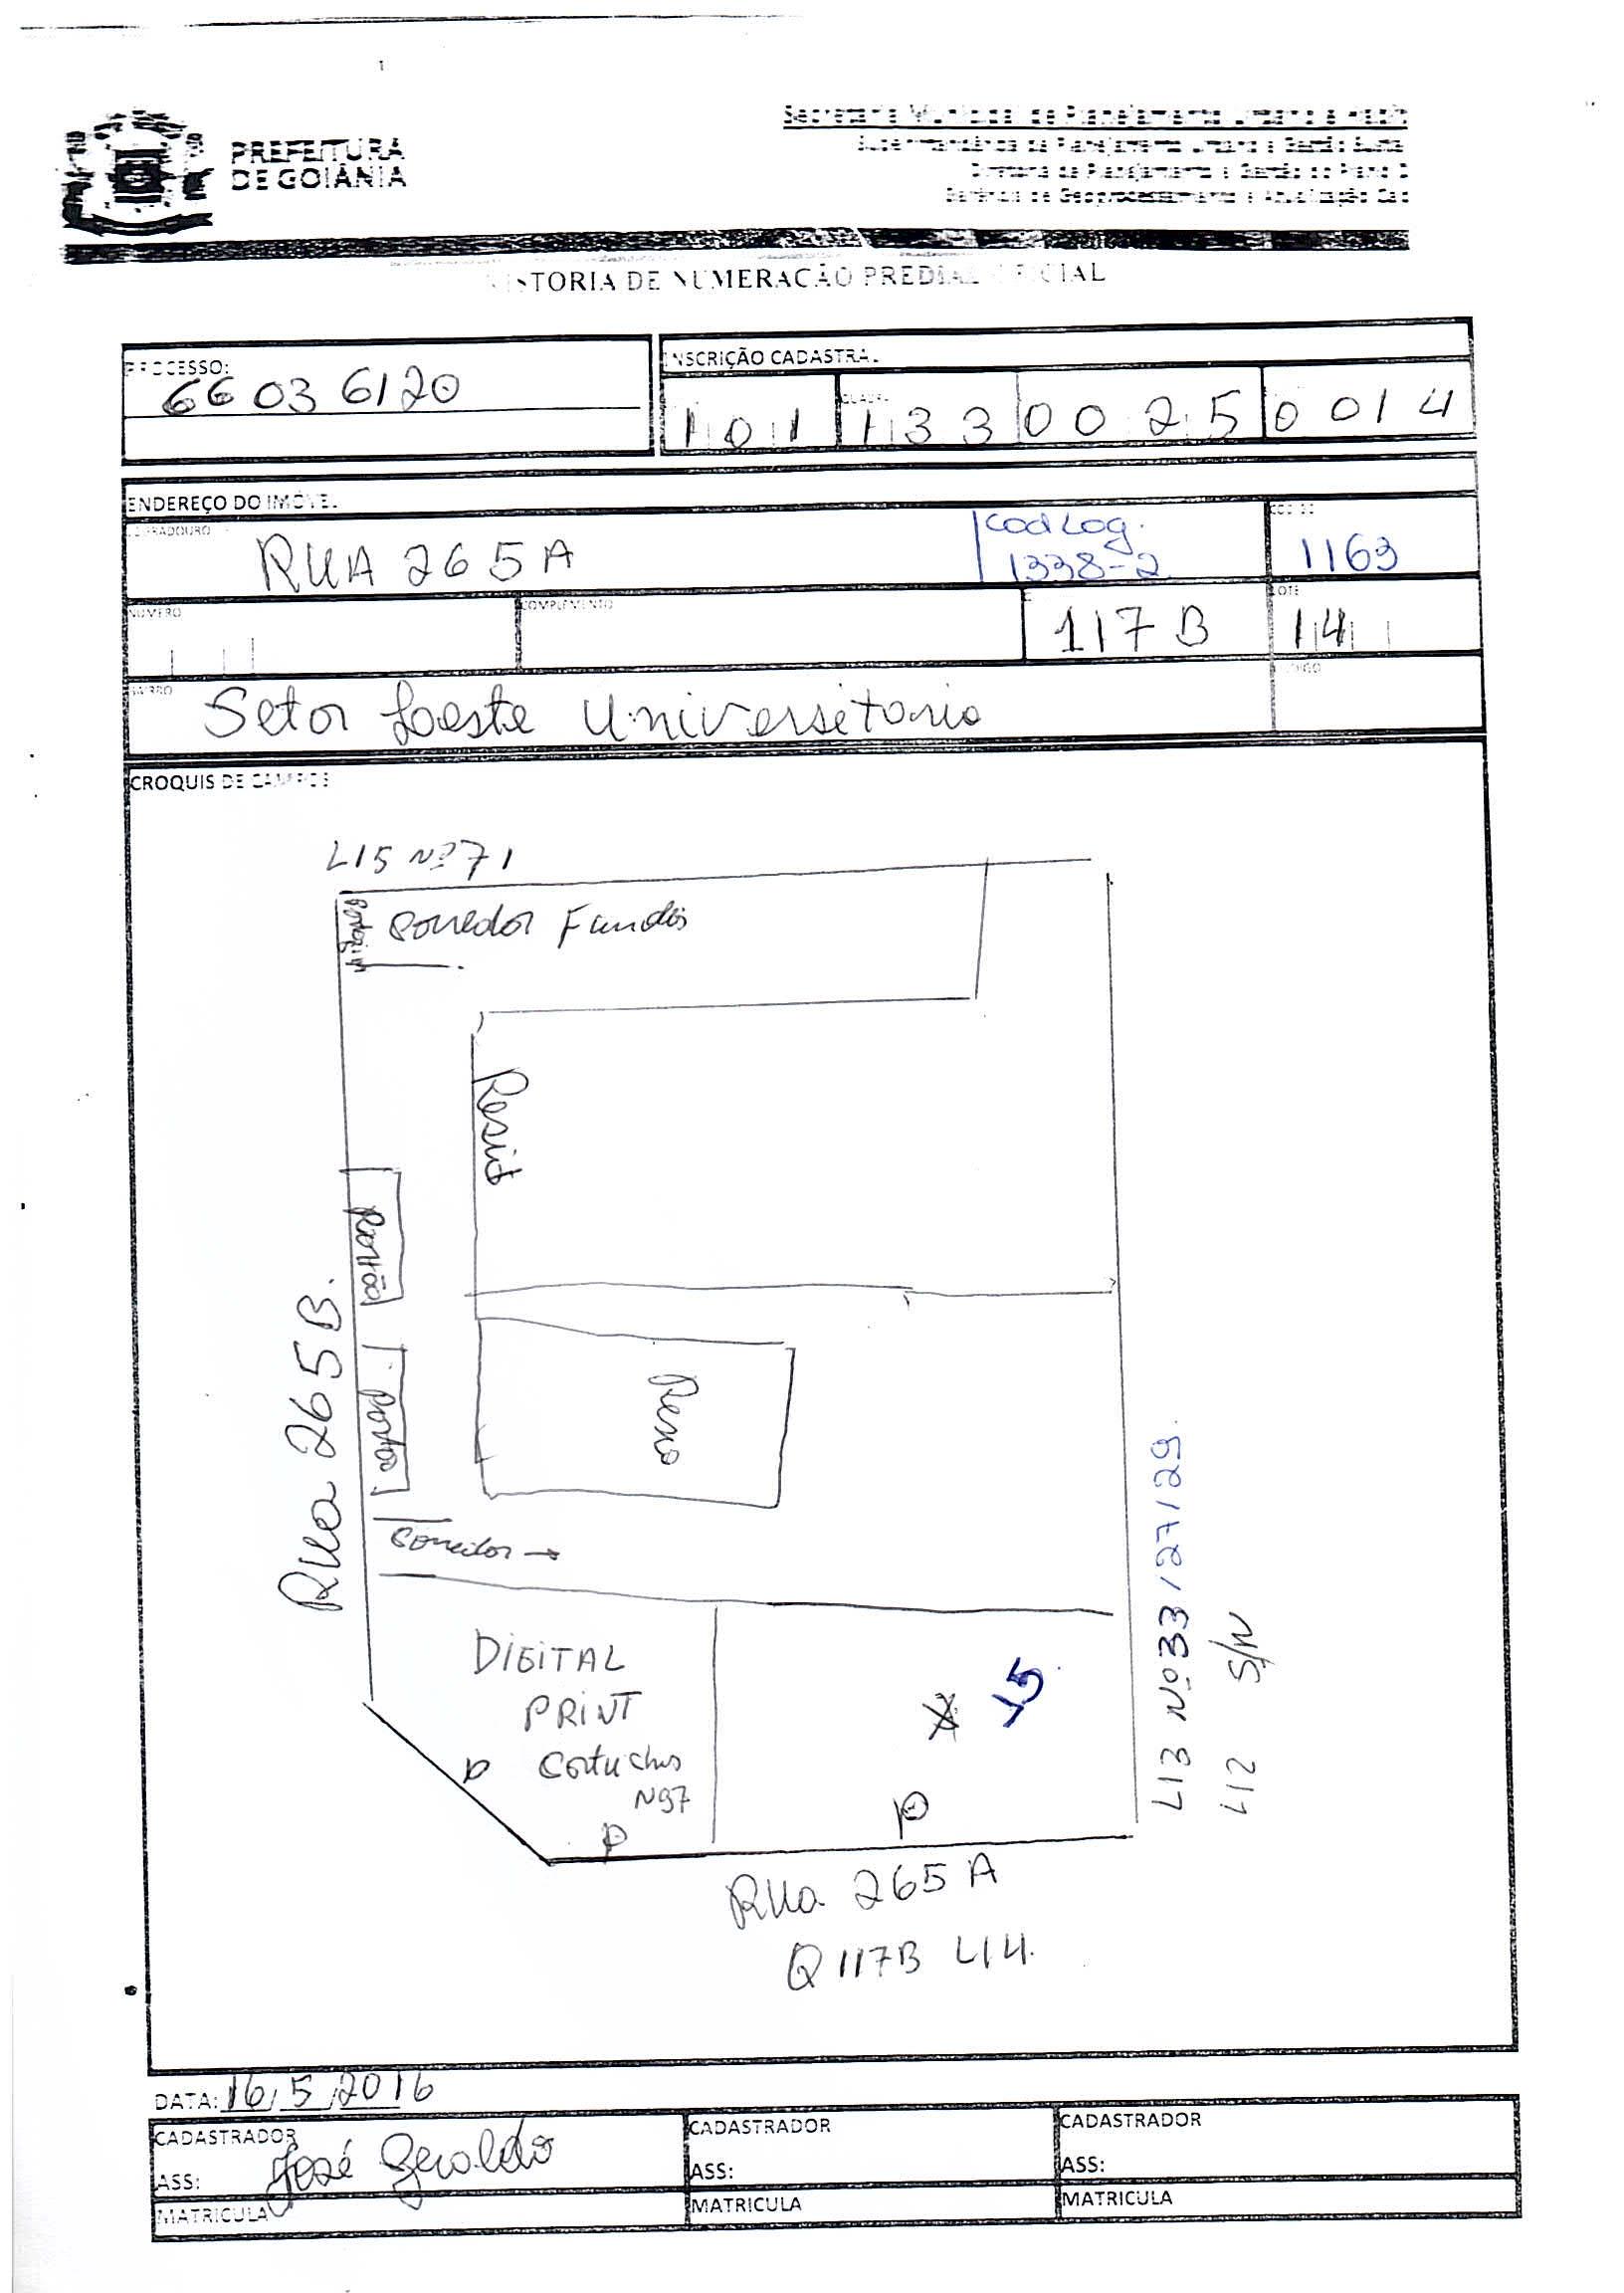 PREFEITURA
DE GOIÂNIA
Secretaria Municipal de Planejamento Urbano e Habit
Superintendência de Planejamento Urbano e Gestão Suste
Diretoria de Planejamento e Gestão do Plano D
Gerência de Geoprocessamento e Atualização Cad
VISTORIA DE NUMERAÇÃO PREDIAL OFICIAL
PROCESSO:
66036120
INSCRIÇÃO CADASTRAL
QUADRA
101 133 0025 0014
ENDEREÇO DO IMÓVEL
LOGRADOURO
RUA 265A
Cod Log.
1338-2
CÓDIGO
1163
NÚMERO
COMPLEMENTO
117B
LOTE
14
BAIRRO
Setor Leste Universitario
CÓDIGO
CROQUIS DE CAMPOS
L15 Nº 71
Corredor Fundos
Resid
Portão
Portão
Rua 265B.
Corredor →
DIGITAL
PRINT
Cartuchos
N97
P
P
X 15
P
L13 Nº 33/27/29.
L12 S/N
Rua 265A
Q117B L14.
DATA: 16/5/2016
CADASTRADOR
ASS: José Geraldo
MATRICULA
CADASTRADOR
ASS:
MATRICULA
CADASTRADOR
ASS:
MATRICULA